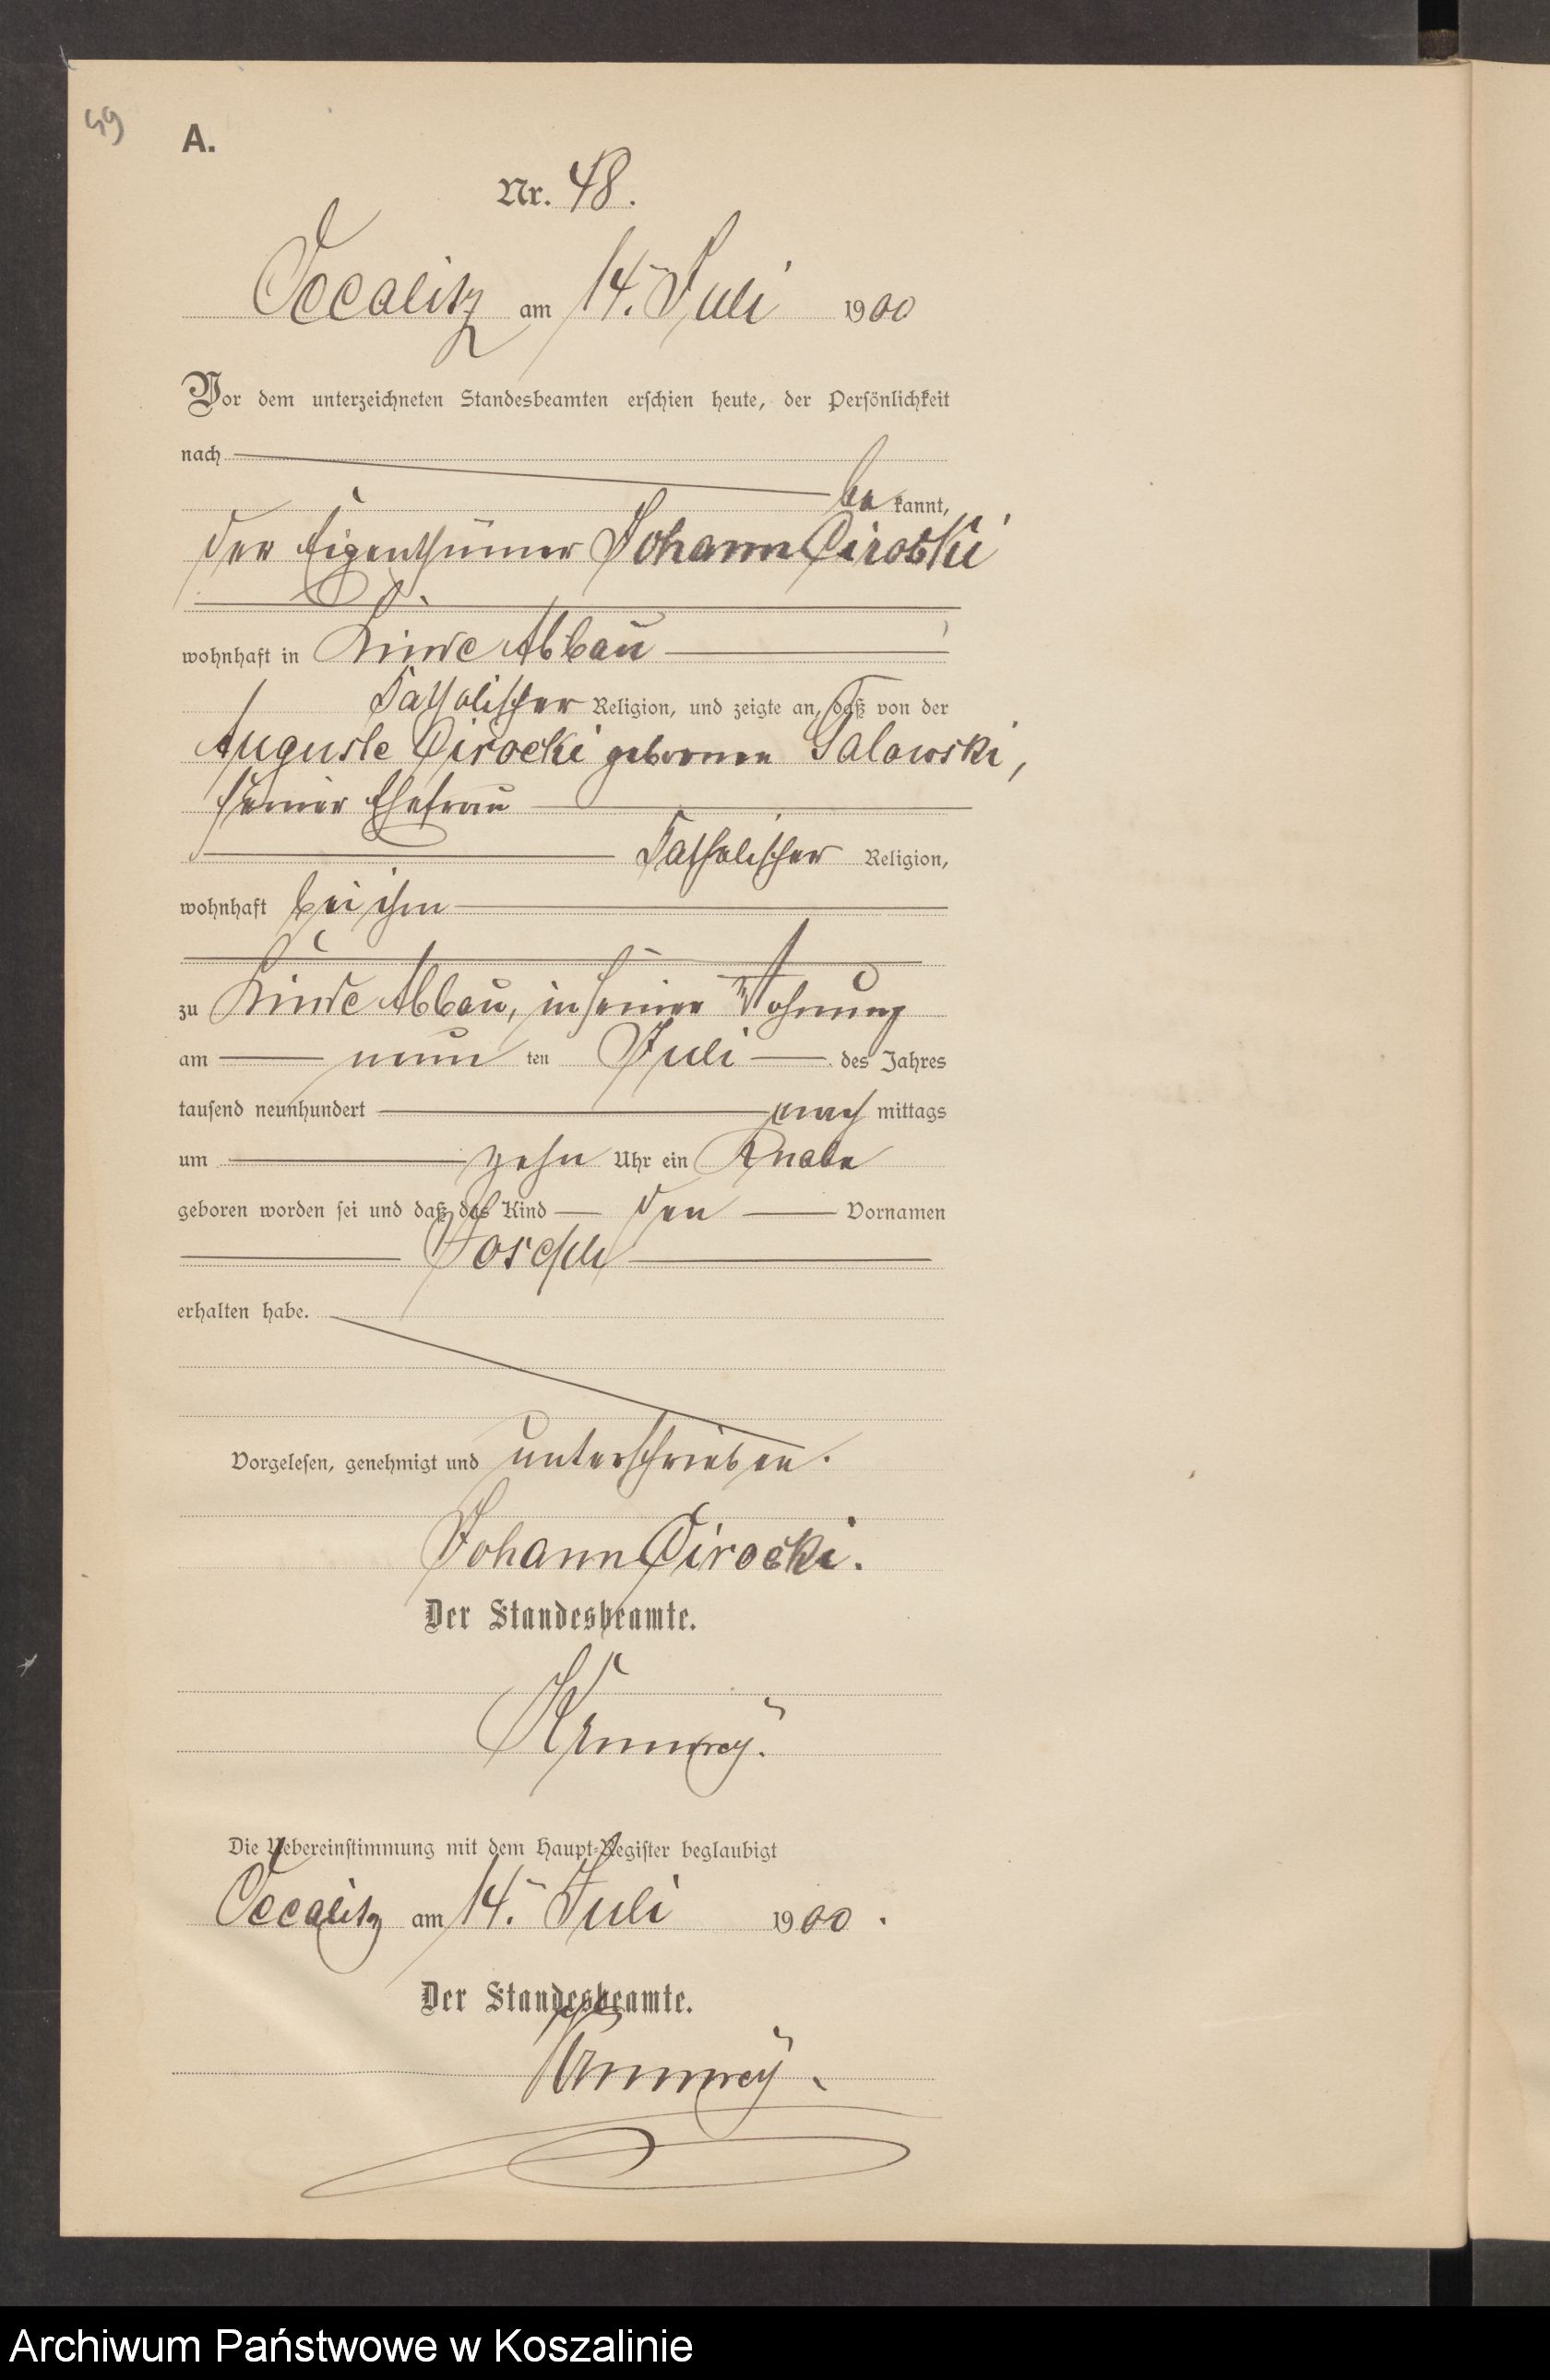 49
A.
Nr. 48.
Occalitz am 14. Juli 1900
Vor dem unterzeichneten Standesbeamten erschien heute, der Persönlichkeit
nach
be kannt,
der Eigenthümer Johann Cirocki
wohnhaft in Abbau
katholischer Religion, und zeigte an, daß von der
Auguste Cirocki geborenen Galowski,
seiner Ehefrau
katholischer Religion,
wohnhaft bei ihm
zu Abbau, in seiner Wohnung
am neun ten Juli des Jahres
tausend neunhundert nach mittags
um zehn Uhr ein Knabe
geboren worden sei und daß das Kind den Vornamen
Joseph
erhalten habe.
Vorgelesen, genehmigt und unterschrieben.
Johann Cirocki.
Der Standesbeamte.
Die Uebereinstimmung mit dem Haupt-Register beglaubigt
Occalitz am 14. Juli 1900.
Der Standesbeamte.
Archiwum Państwowe w Koszalinie